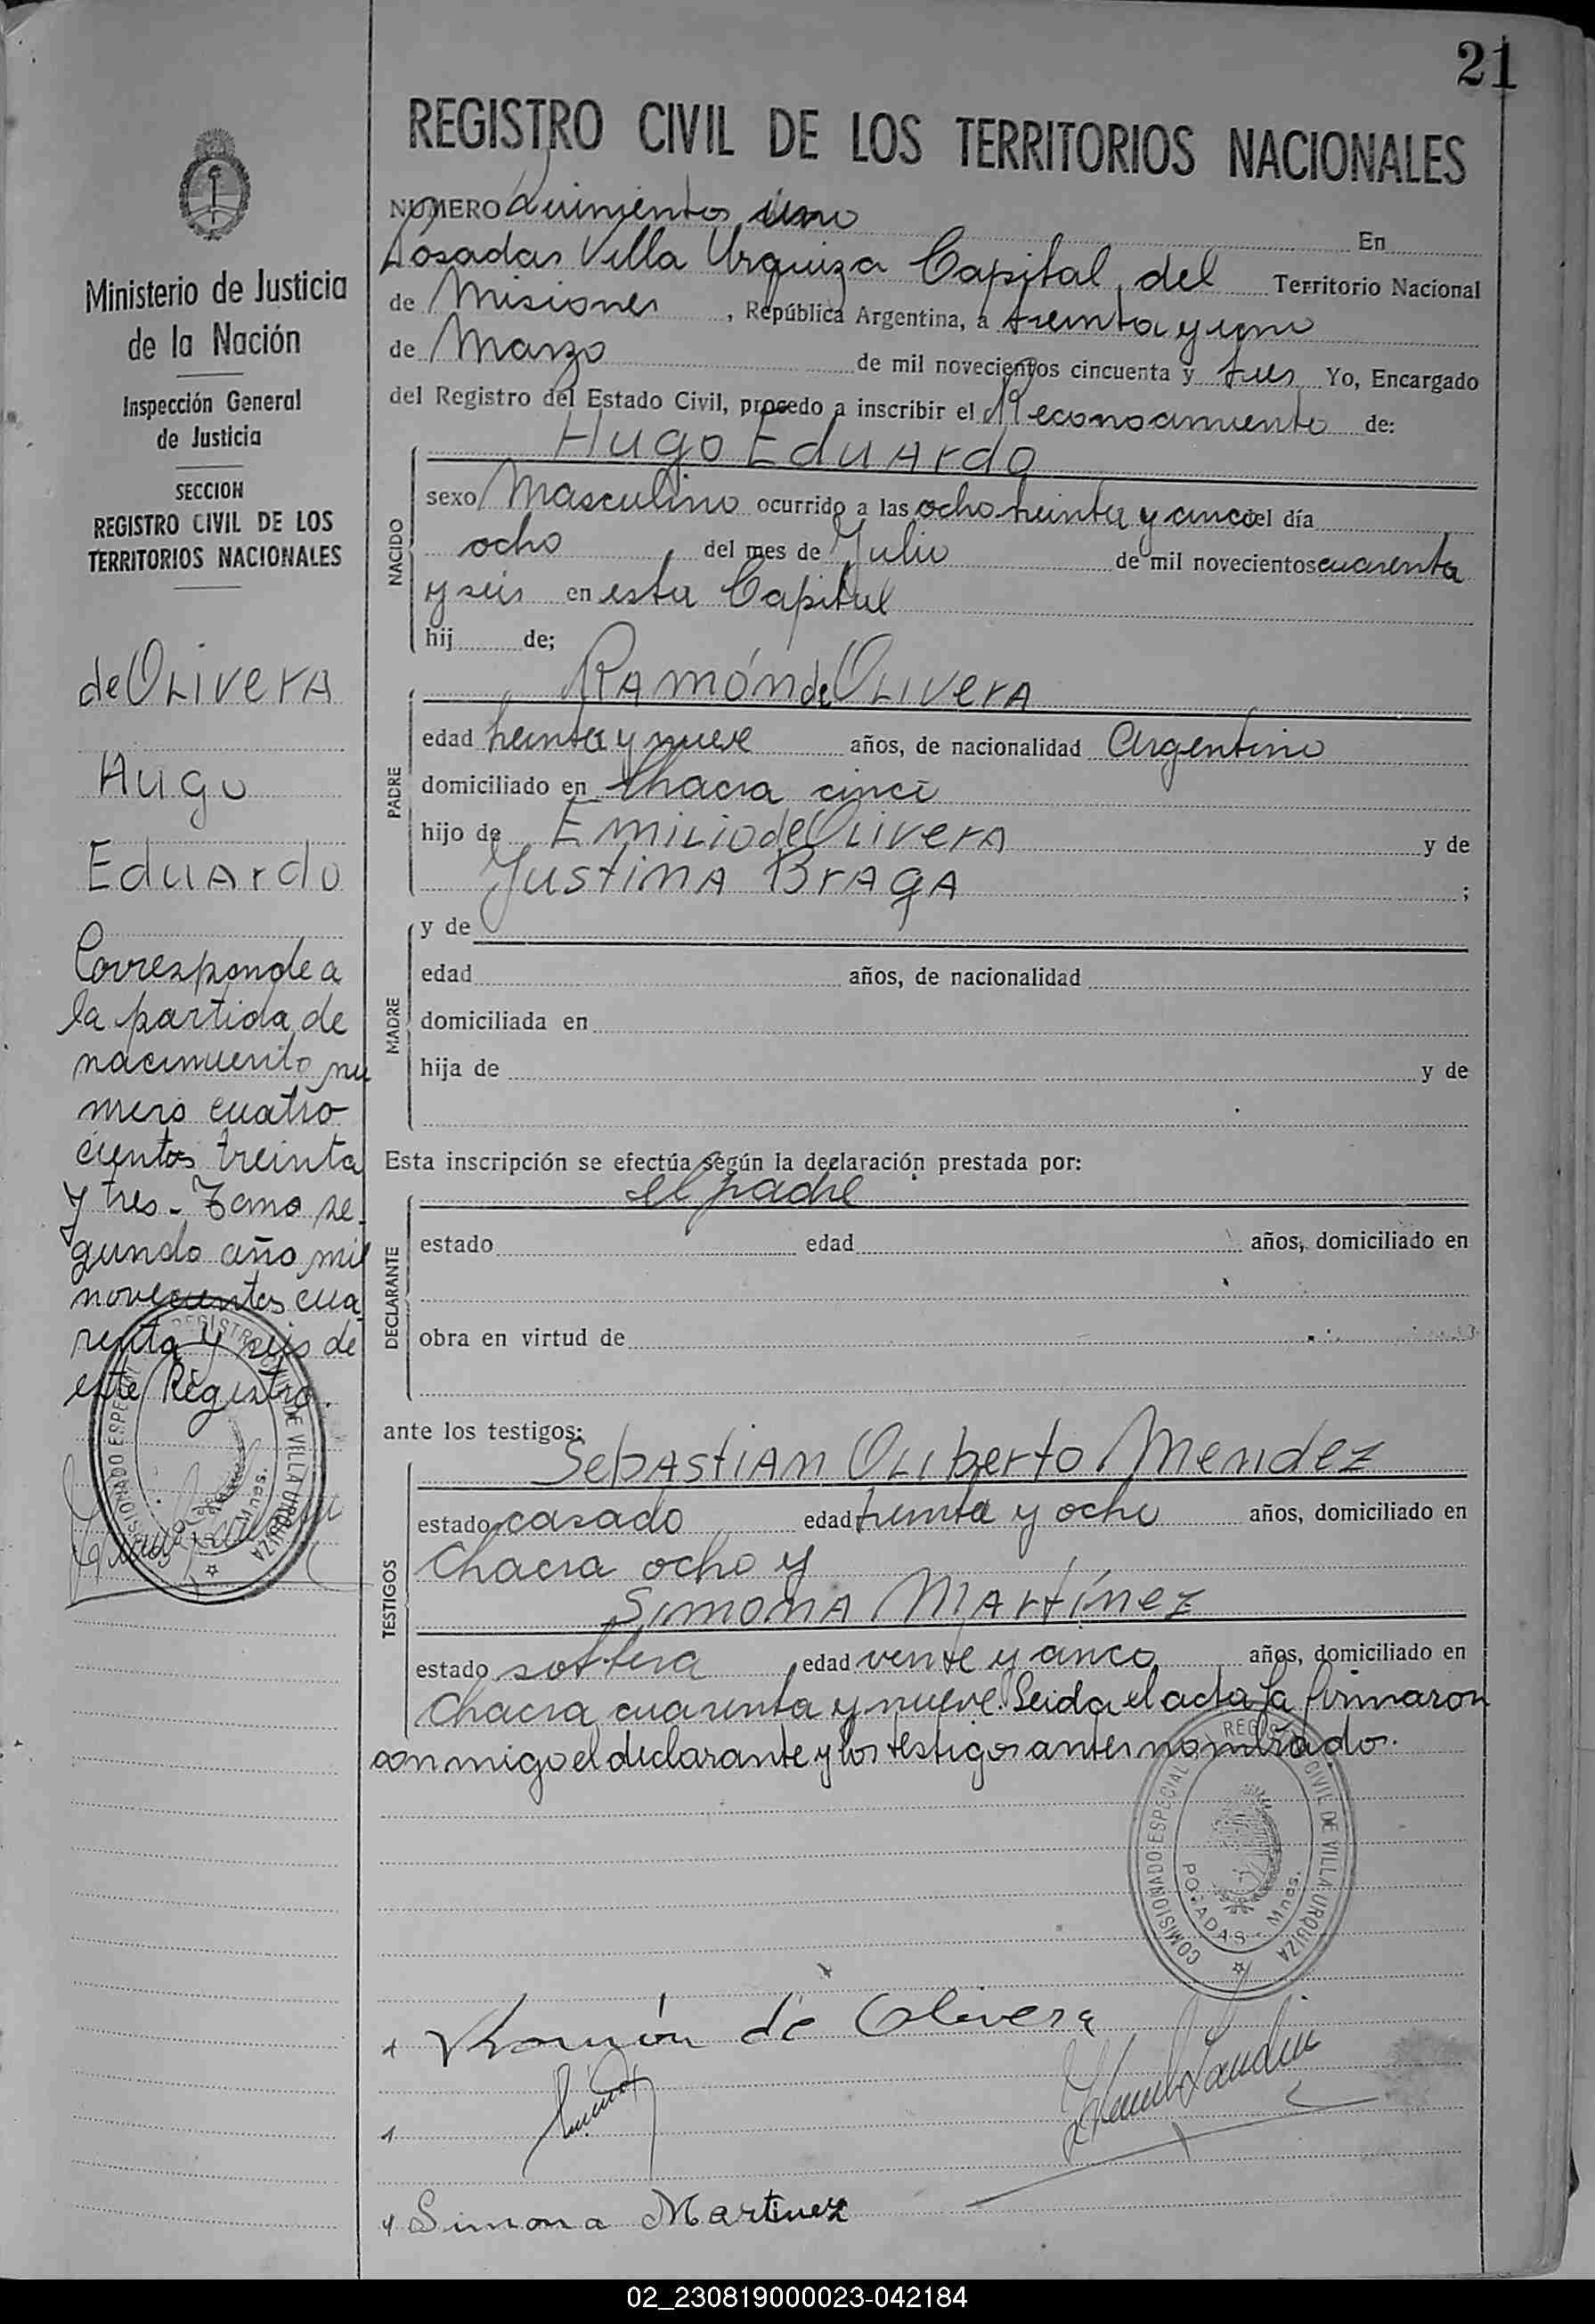 21
REGISTRO CIVIL DE LOS TERRITORIOS NACIONALES
Ministerio de Justicia
de la Nación
Inspección General
de Justicia
SECCION
REGISTRO CIVIL DE LOS
TERRITORIOS NACIONALES
de Olivera
Hugo
Eduardo
Corresponde a
la partida de
nacimiento nu
mero cuatro
cientos treinta
y tres - Tomo se
gundo año mil
novecientos cua
renta y seis de
este Registro.
NUMERO Quinientos uno En
Posadas Villa Urquiza Capital del Territorio Nacional
de Misiones, República Argentina, a treinta y uno
de Marzo de mil novecientos cincuenta y tres Yo, Encargado
del Registro del Estado Civil, procedo a inscribir el Reconocimiento de:
Hugo Eduardo
NACIDO
sexo Masculino ocurrido a las ocho treinta y cinco el día
ocho del mes de Julio de mil novecientos cuarenta
y seis en esta Capital
hij de;
Ramón de Olivera
PADRE
edad treinta y nueve años, de nacionalidad Argentino
domiciliado en Chacra cinco
hijo de Emilio de Olivera y de
Justina Braga ;
MADRE
y de
edad años, de nacionalidad
domiciliada en
hija de y de
Esta inscripción se efectúa según la declaración prestada por:
el padre
DECLARANTE
estado edad años, domiciliado en
obra en virtud de
ante los testigos:
Sebastian Oliberto Mendez
TESTIGOS
estado casado edad treinta y ocho años, domiciliado en
Chacra ocho y
Simona Martínez
estado soltera edad veinte y cinco años, domiciliado en
Chacra cuarenta y nueve. Leida el acta la firmaron
conmigo el declarante y los testigos antes nombrado.
COMISIONADO ESPECIAL REGISTRO CIVIL DE VILLA URQUIZA
POSADAS - Mnes.
Ramón de Olivera
Simona Martinez
02_230819000023-042184